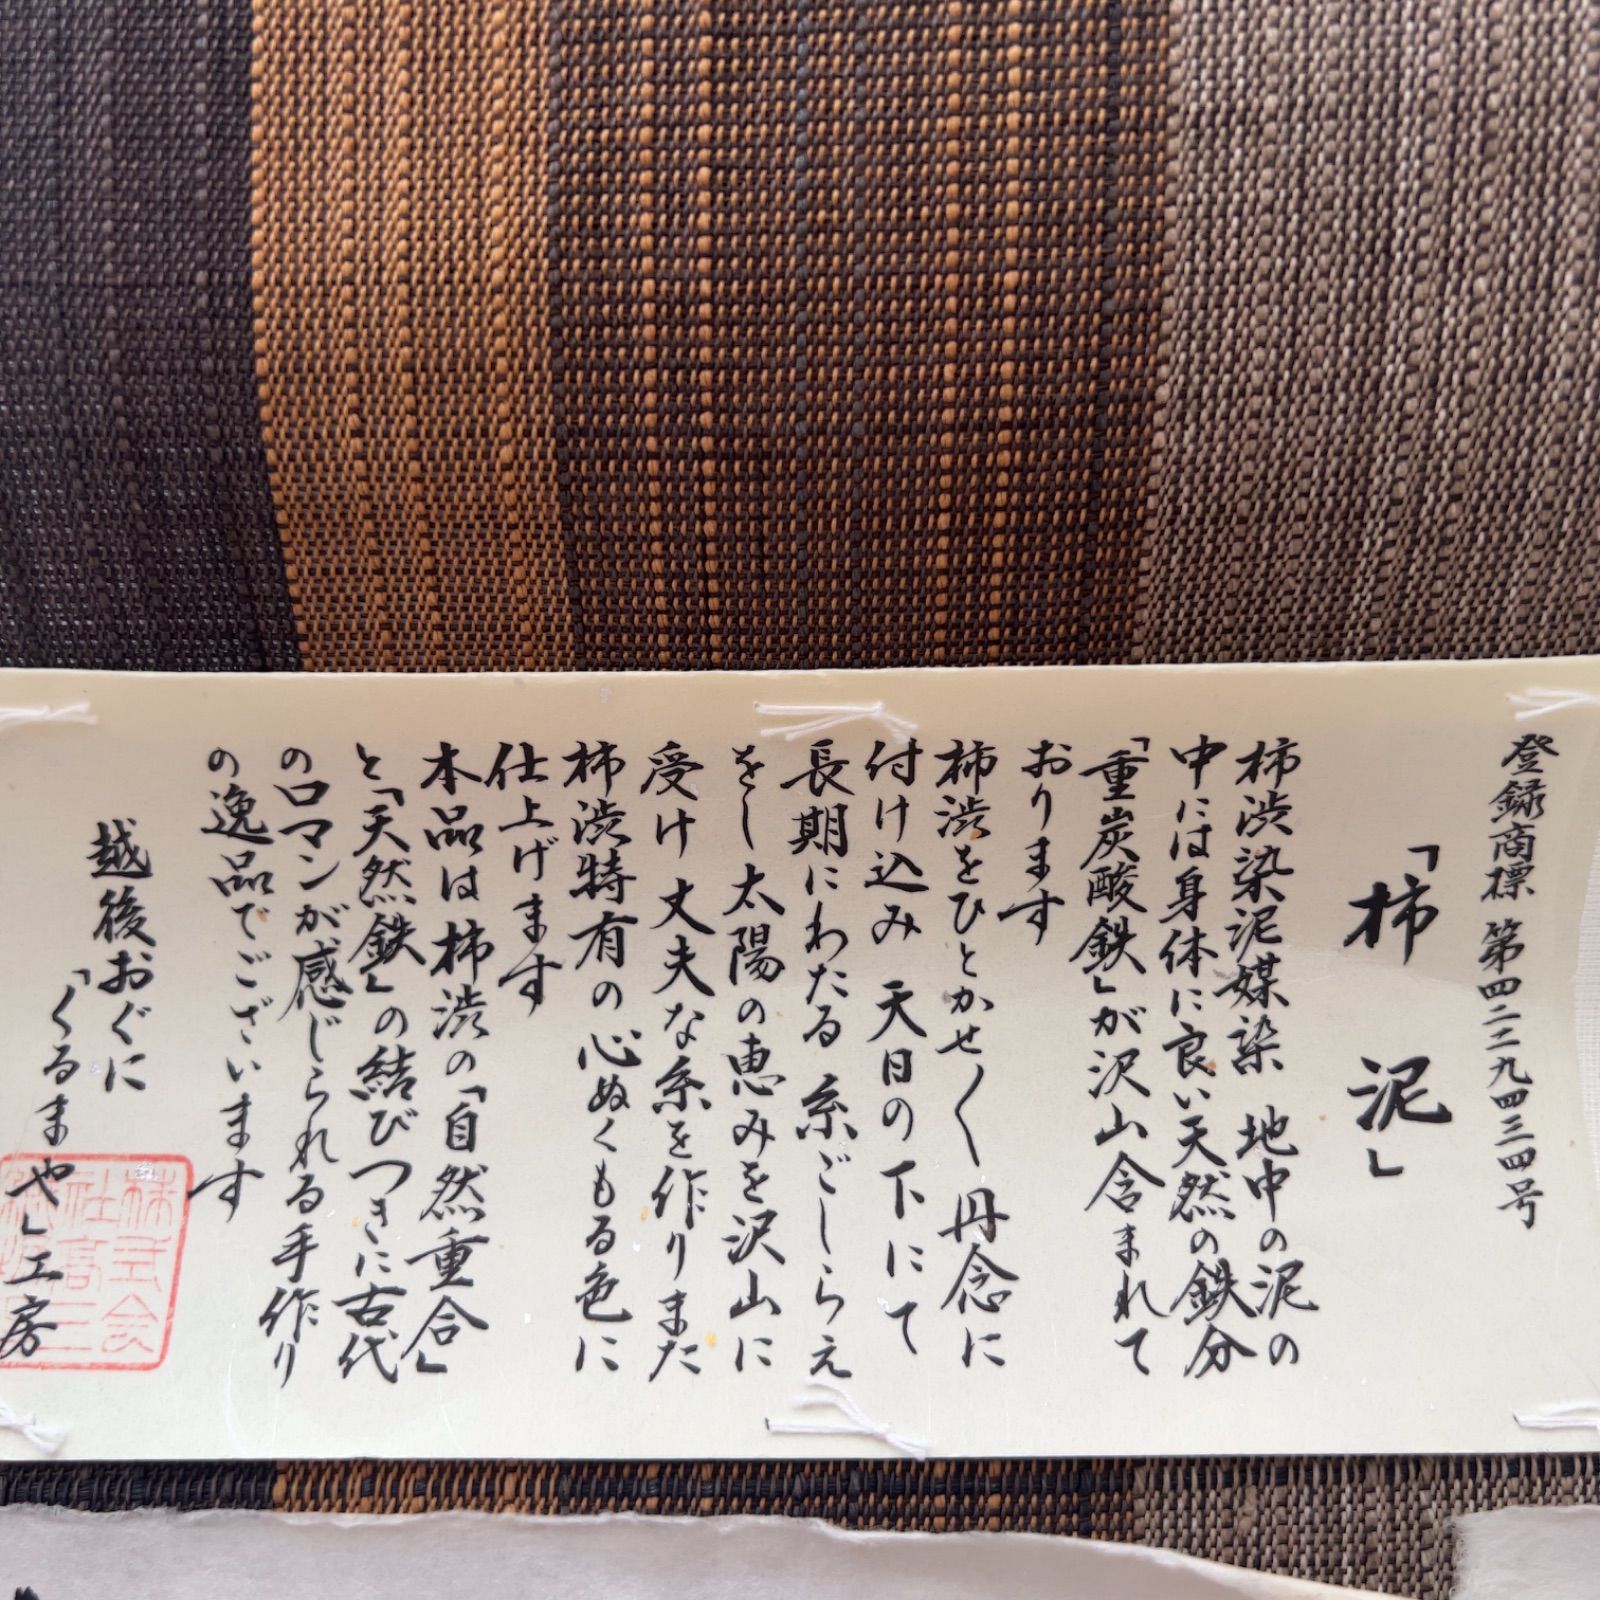 登録商標 第四二二九四三四号
「柿 泥」
柿渋染泥媒染 地中の泥の
中には身体に良い天然の鉄分
「重炭酸鉄」が沢山含まれて
おります
柿渋をひとかせ〱 丹念に
付け込み 天日の下にて
長期にわたる 糸ごしらえ
をし 太陽の恵みを沢山に
受け 丈夫な糸を作りまた
柿渋特有の心ぬくもる色に
仕上げます
本品は柿渋の「自然重合」
と「天然鉄」の結びつきに古代
のロマンが感じられる手作り
の逸品でございます
越後おぐに
「くるまや」工房
株式会
社高三